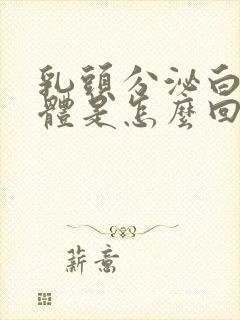 乳頭分泌白
體是怎麼回
薪意